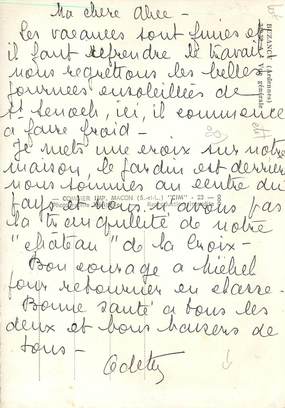 Ma chere Alice -
Les vacances sont finies et
il faut reprendre le travail
nous regrettons les belles
journees ensoleillées de
St Senoch, ici, il commence
a faire froid -
Je mets une croix sur notre
maison, le jardin est derriere
nous sommes au centre du
pays et nous n'avons pas
la tranquillité de notre
"château" de la Croix -
Bon courage a Michel
pour retourner en classe -
Bonne santé a tous les
deux et bons baisers de
tous -
Odette
BUZANCY (Ardennes)
Vue générale
COMBIER IMP. MACON (S.-et-L.) "CIM"